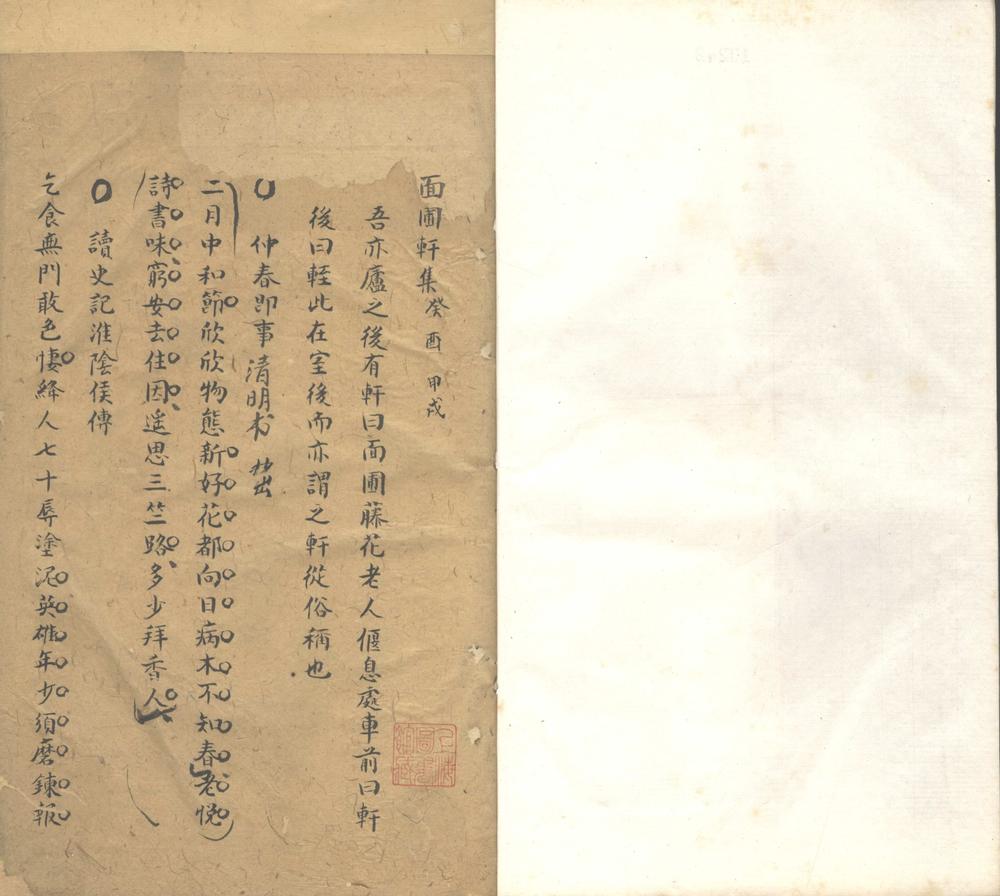 面圃軒集癸酉 甲戌
吾亦廬之後有軒曰面圃藤花老人偃息處車前曰軒
後曰輊此在室後而亦謂之軒從俗稱也
仲春即事 清明
二月中和節欣欣物態新好花都向日病木不知春老悦
詩書味窮安去住因遥思三竺路多少拜香人
讀史記淮陰侯傳
乞食無門敢色悽絳人七十辱塗泥英雄年少須磨鍊報